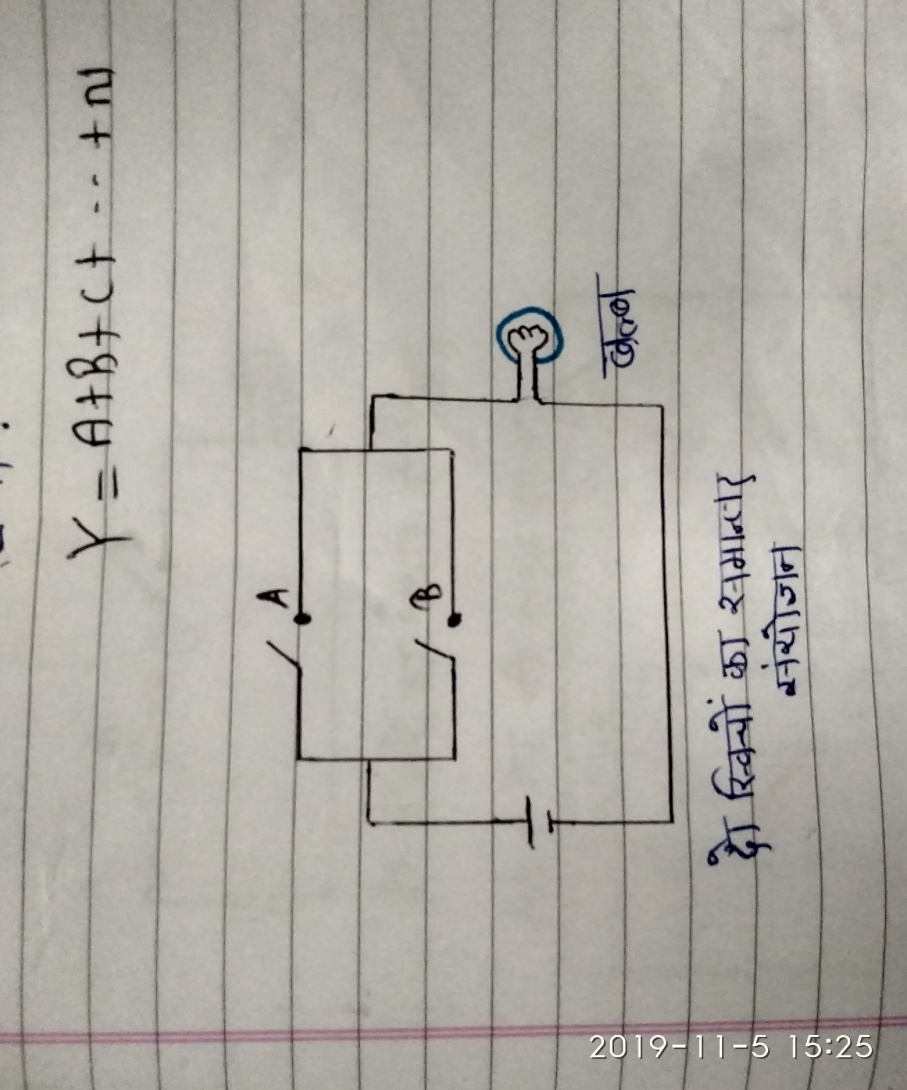 Y = A+B+C+ --- +N
A
B
बल्ब
दो स्विचों का समान्तर
संयोजन
2019-11-5 15:25